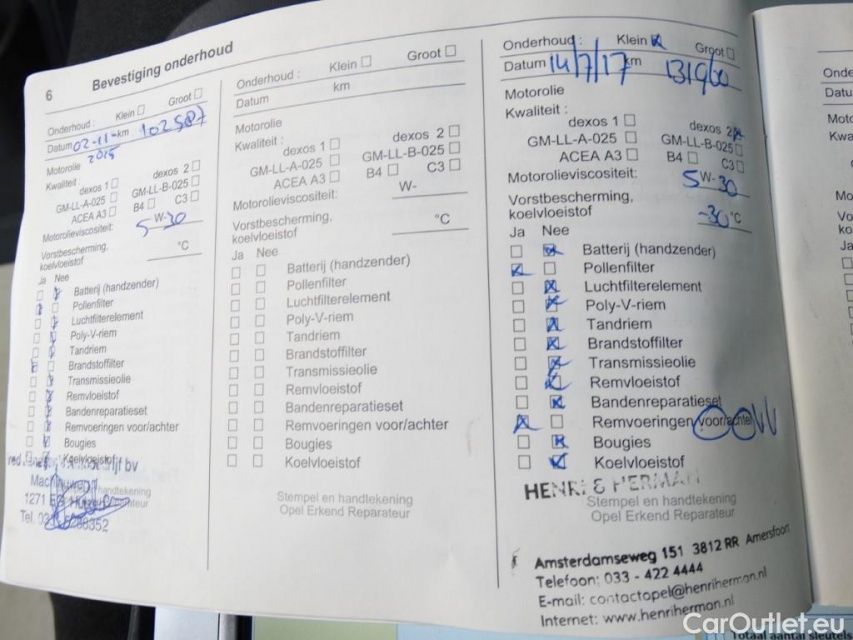 6
Bevestiging onderhoud
Onderhoud : Klein Groot
Datum 02-11- km 102587
2015
Motorolie
Kwaliteit :
dexos 1 dexos 2
GM-LL-A-025 GM-LL-B-025
ACEA A3 B4 C3
Motorolieviscositeit: 5-W-30
Vorstbescherming,
koelvloeistof °C
Ja Nee
Batterij (handzender)
Pollenfilter
Luchtfilterelement
Poly-V-riem
Tandriem
Brandstoffilter
Transmissieolie
Remvloeistof
Bandenreparatieset
Remvoeringen voor/achter
Bougies
Koelvloeistof
bv
1271
handtekening
Tel.
Onderhoud : Klein Groot
Datum km
Motorolie
Kwaliteit :
dexos 1 dexos 2
GM-LL-A-025 GM-LL-B-025
ACEA A3 B4 C3
Motorolieviscositeit: W-
Vorstbescherming,
koelvloeistof °C
Ja Nee
Batterij (handzender)
Pollenfilter
Luchtfilterelement
Poly-V-riem
Tandriem
Brandstoffilter
Transmissieolie
Remvloeistof
Bandenreparatieset
Remvoeringen voor/achter
Bougies
Koelvloeistof
Stempel en handtekening
Opel Erkend Reparateur
Onderhoud : Klein Groot
Datum 14/7/17 km
Motorolie
Kwaliteit :
dexos 1 dexos 2
GM-LL-A-025 GM-LL-B-025
ACEA A3 B4 C3
Motorolieviscositeit: 5 W- 30
Vorstbescherming,
koelvloeistof -30 °C
Ja Nee
Batterij (handzender)
Pollenfilter
Luchtfilterelement
Poly-V-riem
Tandriem
Brandstoffilter
Transmissieolie
Remvloeistof
Bandenreparatieset
Remvoeringen voor/achter
Bougies
Koelvloeistof
HENRI & HERMAN
Stempel en handtekening
Opel Erkend Reparateur
Amsterdamseweg 151 3812 RR Amersfoort
Telefoon: 033 - 422 4444
E-mail: contactopel@henriherman.nl
Internet: www.henriherman.nl
Totaal aantal sleutel
CarOutlet.eu